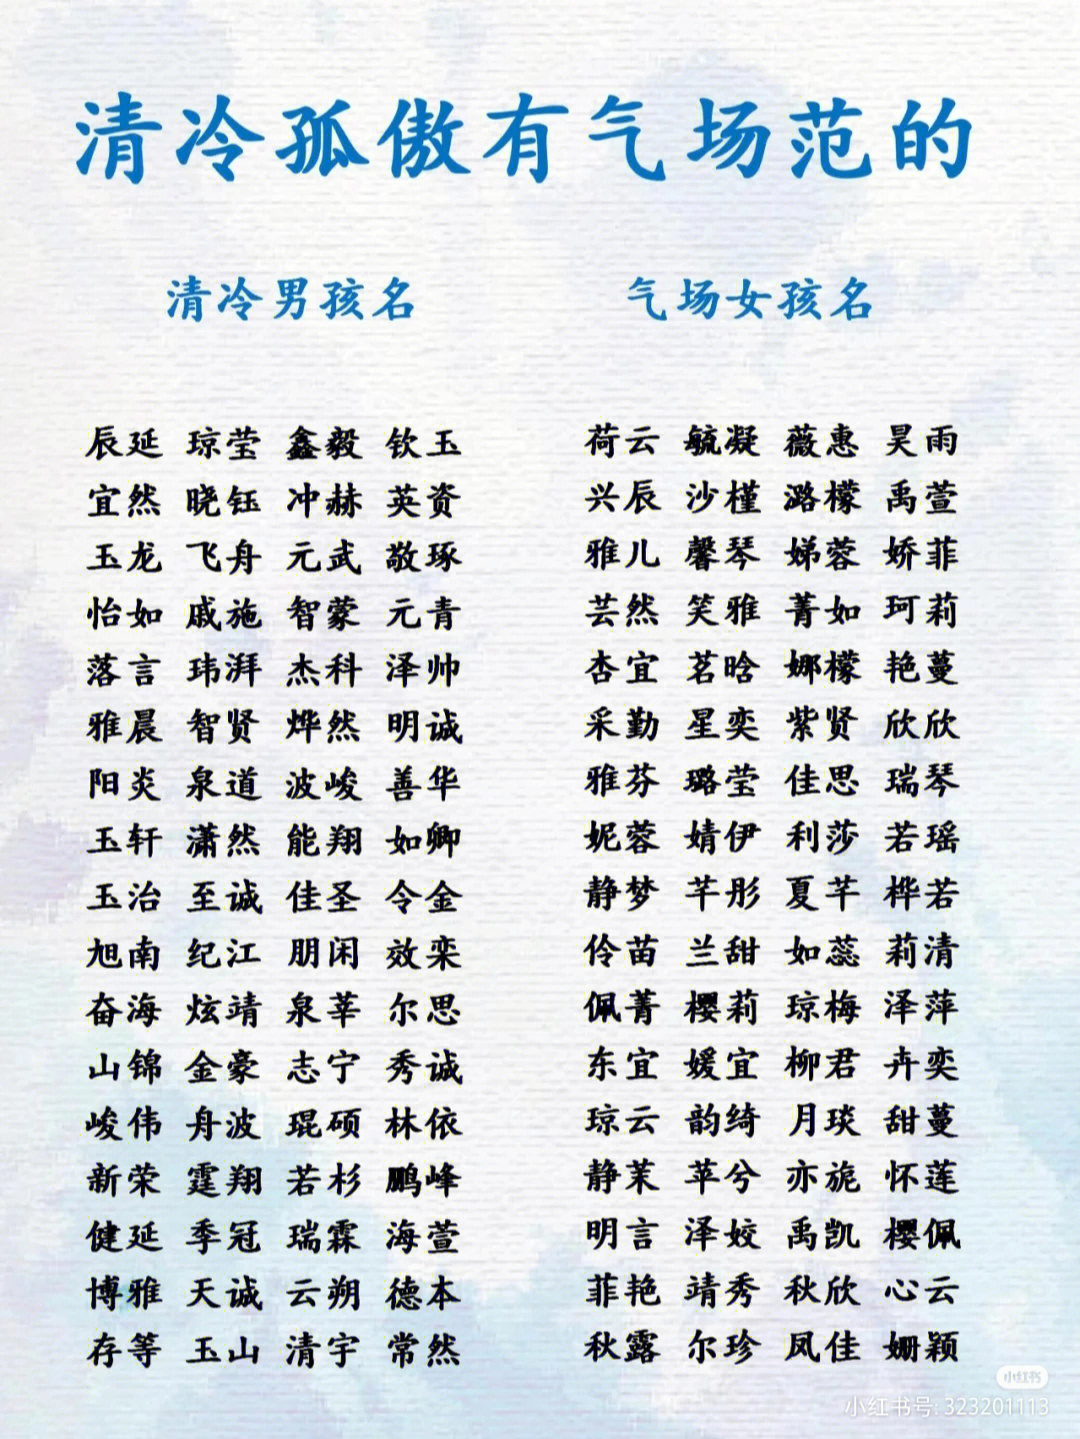 清冷孤傲有气场范的
清冷男孩名
气场女孩名
辰延 琼莹 鑫毅 钦玉
宜然 晓钰 冲赫 英资
玉龙 飞舟 元武 敬琢
怡如 戚施 智蒙 元青
落言 玮湃 杰科 泽帅
雅晨 智贤 烨然 明诚
阳炎 泉道 波峻 善华
玉轩 潇然 能翔 如卿
玉治 至诚 佳圣 令金
旭南 纪江 朋闲 效栾
奋海 炫靖 泉莘 尔思
山锦 金豪 志宁 秀诚
峻伟 舟波 琨硕 林依
新荣 霆翔 若杉 鹏峰
健延 季冠 瑞霖 海萱
博雅 天诚 云朔 德本
存等 玉山 清宇 常然
荷云 毓凝 薇惠 昊雨
兴辰 沙槿 潞檬 禹萱
雅儿 馨琴 娣蓉 娇菲
芸然 笑雅 菁如 珂莉
杏宜 茗晗 娜檬 艳蔓
采勤 星奕 紫贤 欣欣
雅芬 璐莹 佳思 瑞琴
妮蓉 婧伊 利莎 若瑶
静梦 芊彤 夏芊 桦若
伶苗 兰甜 如蕊 莉清
佩菁 樱莉 琼梅 泽萍
东宜 媛宜 柳君 卉奕
琼云 韵绮 月琰 甜蔓
静茉 苹兮 亦旎 怀莲
明言 泽姣 禹凯 樱佩
菲艳 靖秀 秋欣 心云
秋露 尔珍 凤佳 姗颖
小红书
小红书号: 323201113